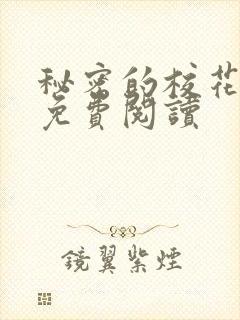 秘密的校花
免費閱讀
鏡翼紫煙